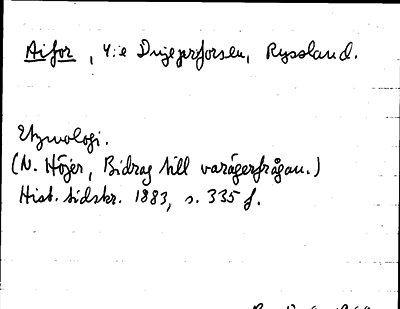 Aifor, 4:e Dnjeprforsen, Ryssland.
Etymologi.
(N. Höjer, Bidrag till varägerfrågan.)
Hist. tidskr. 1883, s. 335 f.